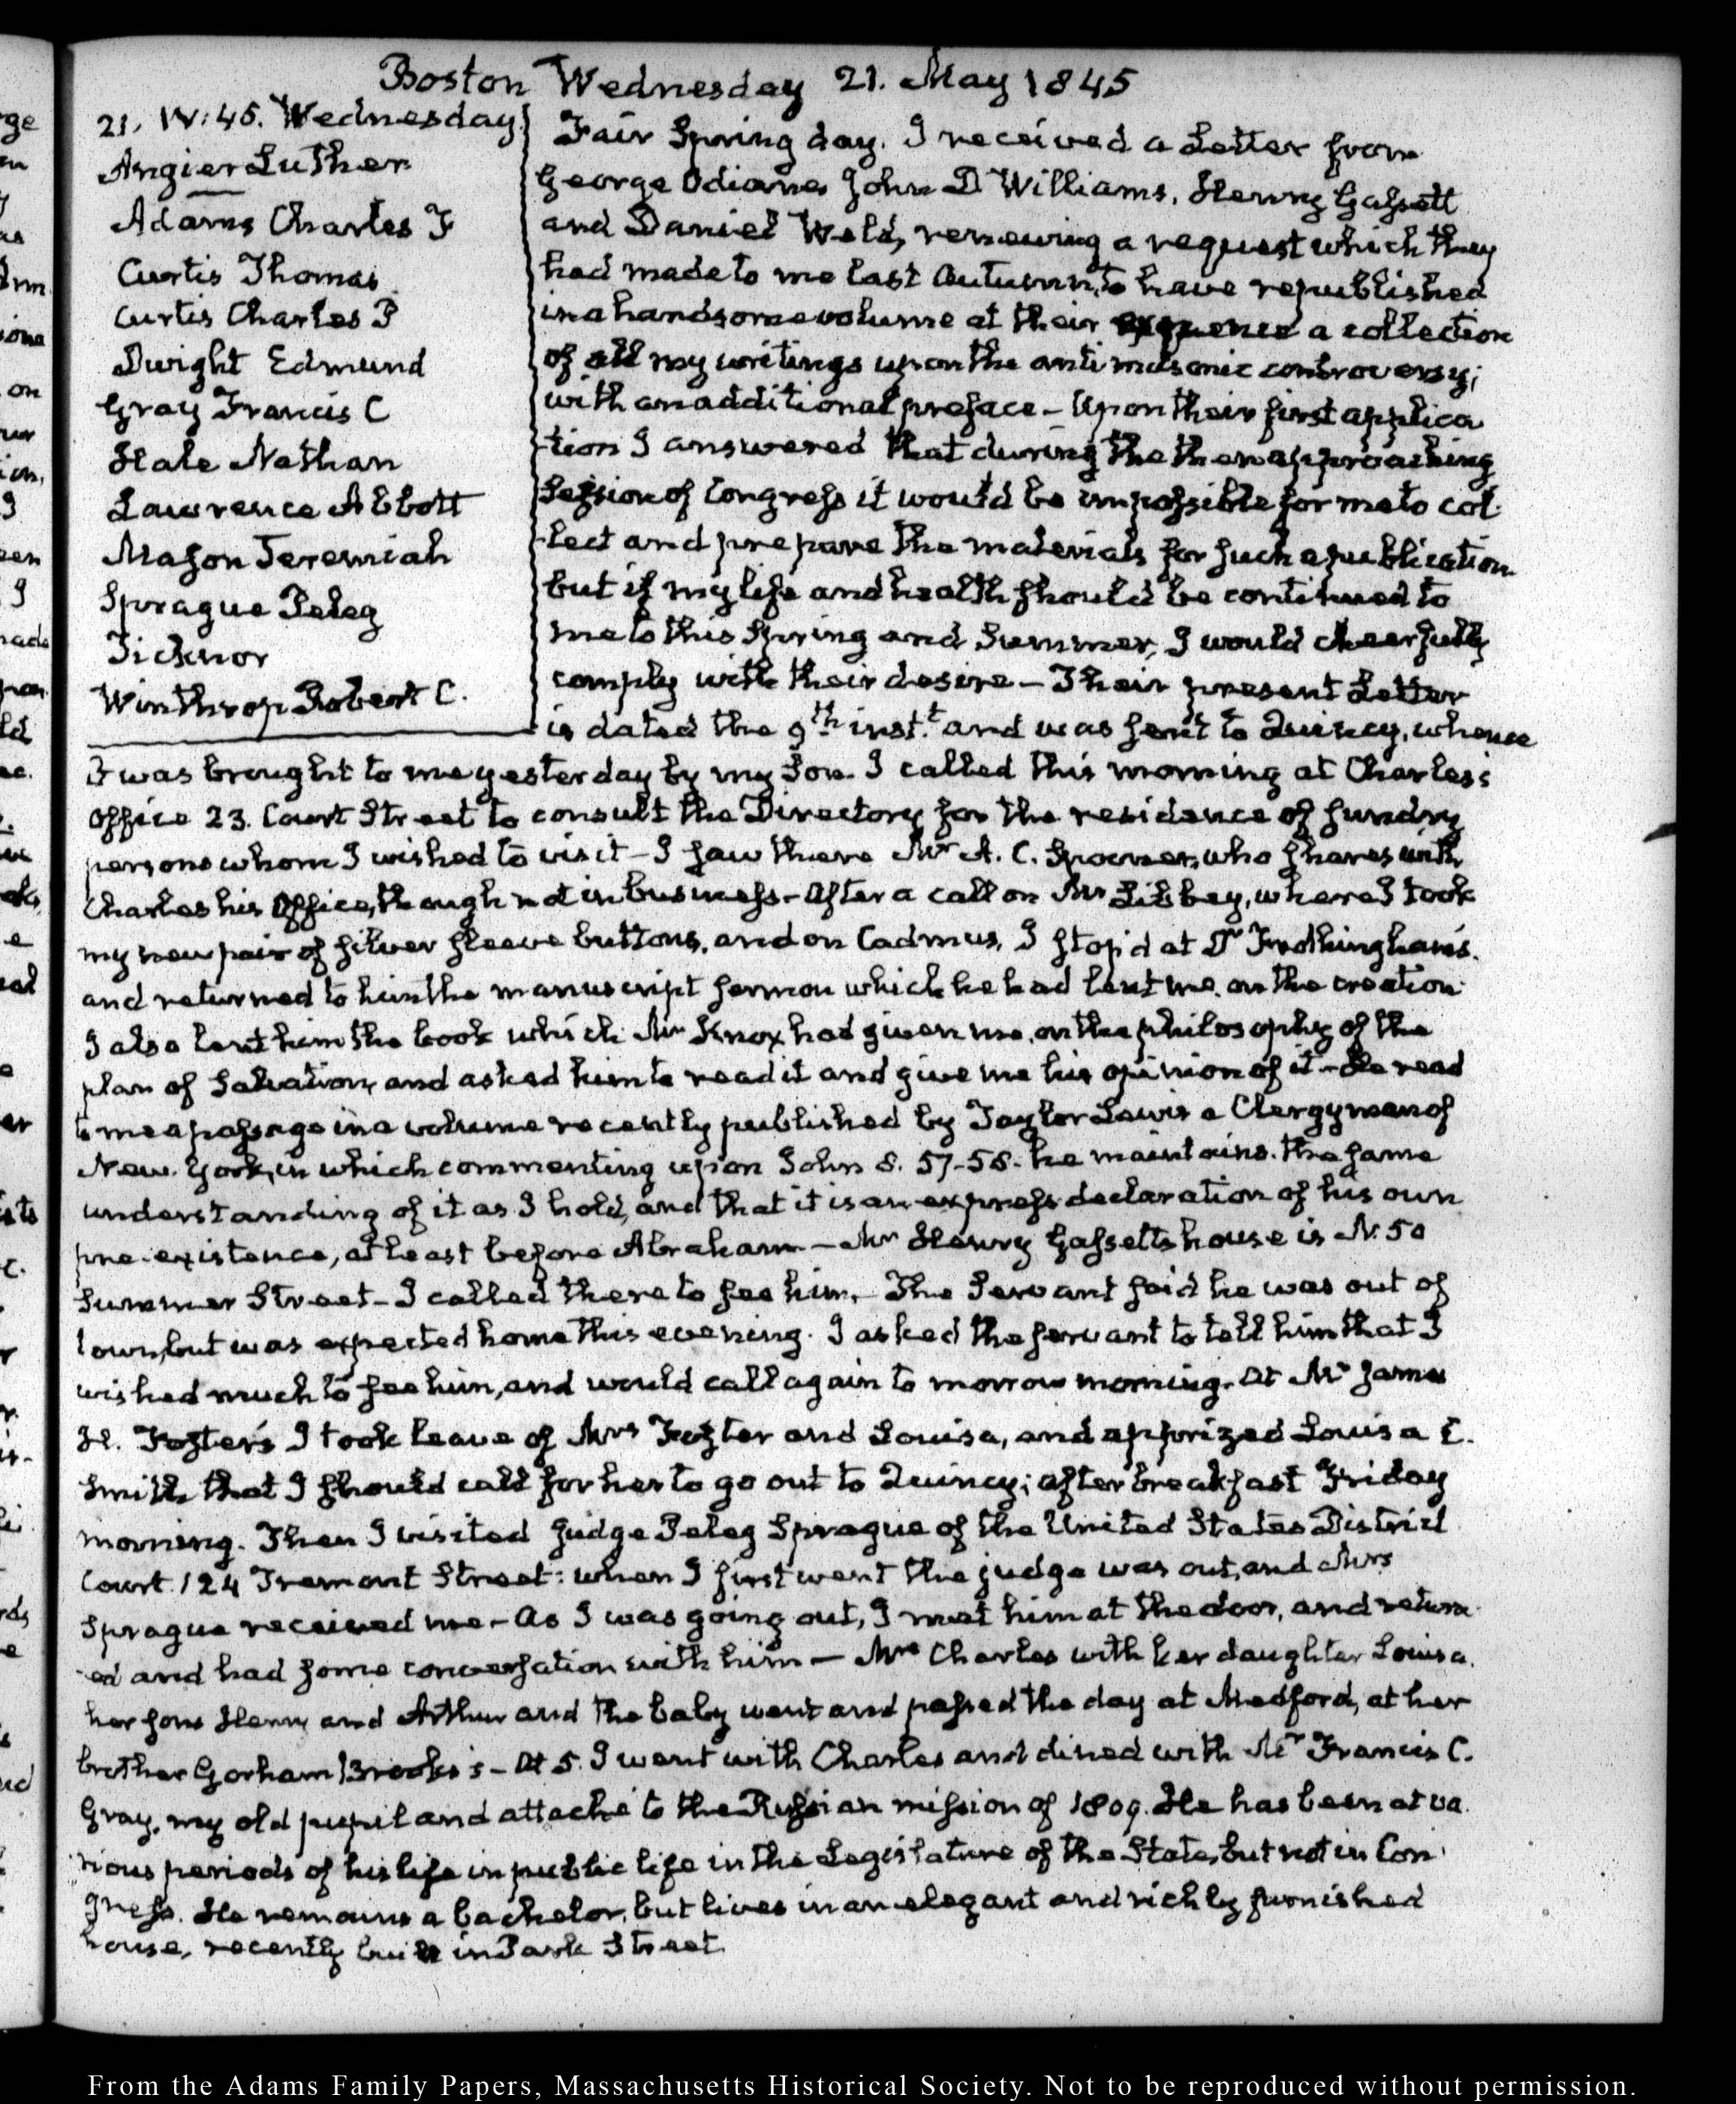 Boston Wednesday 21. May 1845
21. IV:45. Wednesday
Angier Luther
Adams Charles F
Curtis Thomas
Curtis Charles P
Dwight Edmund
Gray Francis C
Hale Nathan
Lawrence Abbott
Mason Jeremiah
Sprague Peleg
Ticknor
Winthrop Robert C.
Fair Spring day. I received a Letter from
George Odiorne, John D Williams, Henry Gassett
and Daniel Weld, renewing a request which they
had made to me last Autumn, to have republished
in a handsome volume at their expence a collection
of all my writings upon the anti masonic controversy;
with an additional preface - Upon their first applica
tion I answered that during the then approaching
Session of Congress it would be impossible for me to col-
-lect and prepare the materials for such a publication
but if my life and health should be continued to
me to this Spring and Summer, I would cheerfully
comply with their desire - Their present Letter
is dated the 9th inst.t and was sent to Quincy, whence
it was brought to me yesterday by my Son. I called this morning at Charles's
office 23. Court Street to consult the Directory for the residence of sundry
persons whom I wished to visit - I saw there Mr A. C. Spooner, who shares with
Charles his Office, though not in business - After a call on Mr Libbey, where I took
my new pair of silver sleeve buttons, and on Cadmus, I stop'd at Dr Frothingham's.
and returned to him the manuscript sermon which he had lent me, on the creation
I also lent him the book which Mr Knox had given me, on the philosophy of the
plan of Salvation, and asked him to read it and give me his opinion of it - He read
to me a passage in a volume recently published by Taylor Lewis a Clergyman of
New-York, in which commenting upon John 8. 57-58. he maintains the same
understanding of it as I hold, and that it is an express declaration of his own
pre-existence, at least before Abraham - Mr Henry Gassetts house is N. 50
Summer Street - I called there to see him - The Servant said he was out of
town, but was expected home this evening. I asked the servant to tell him that I
wished much to see him, and would call again to morrow morning. At Mr James
H. Foster's I took leave of Mrs Foster and Louisa, and apprized Louisa C.
Smith that I should call for her to go out to Quincy; after breakfast Friday
morning. Then I visited Judge Peleg Sprague of the United States District
Court. 124 Tremont Street: when I first went the judge was out, and Mrs
Sprague received me - As I was going out, I met him at the door, and return-
-ed and had some conversation with him - Mrs Charles with her daughter Louisa.
her sons Henry and Arthur and the baby went and passed the day at Medford, at her
brother Gorham Brooks's - At 5. I went with Charles and dined with Mr Francis C.
Gray, my old pupil and attaché to the Russian mission of 1809. He has been at va-
rious periods of his life in public life in the Legislature of the State, but not in Con-
gress. He remains a bachelor, but lives in an elegant and richly furnished
house, recently built in Park Street.
From the Adams Family Papers, Massachusetts Historical Society. Not to be reproduced without permission.